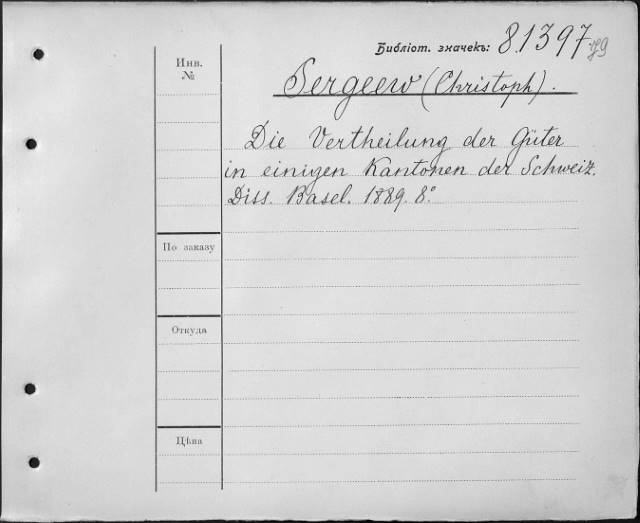 Библіот. значекъ: 8.1397
Инв.
№
Sergeew (Christoph).
Die Vertheilung der Güter
in einigen Kantonen der Schweiz.
Diss. Basel. 1889. 8°
По заказу
Откуда
Цѣна